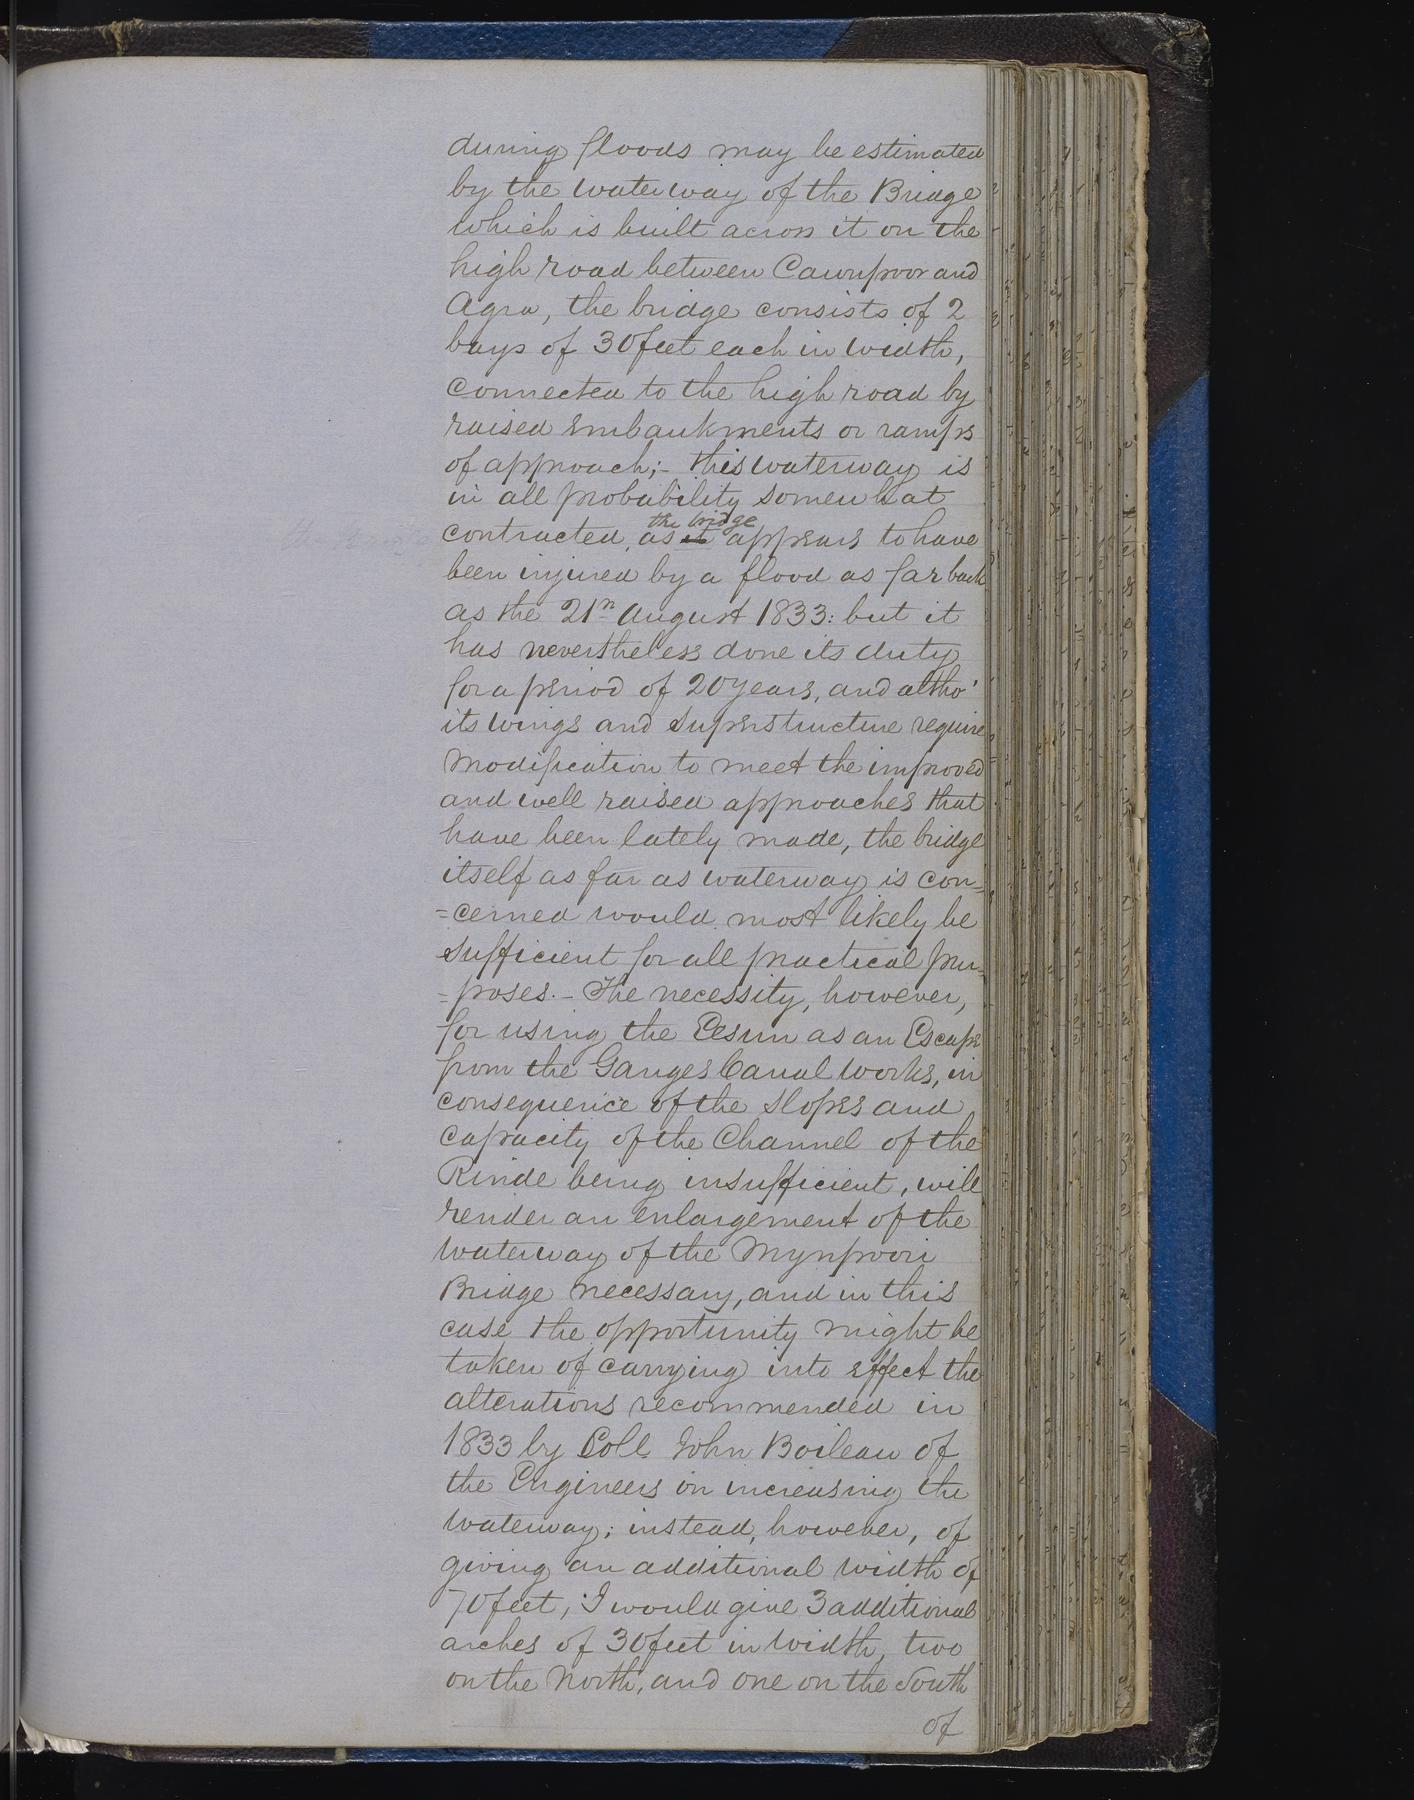 during floods may be estimated
by the waterway of the Bridge
which is built across it on the
high road between Cawnpoor and
Agra, the bridge consists of 2
bays of 30 feet each in width,
connected to the high road by
raised embankments or ramps
of approach;- this waterway is
in all probability somewhat
the bridge
contracted, as it appears to have
been injured by a flood as far back
as the 21st August 1833: but it
has nevertheless done its duty
for a period of 20 years, and altho'
its wings and superstructure require
modification to meet the improved
and well raised approaches that
have been lately made, the bridge
itself as far as waterway is con=
=cerned would most likely be
sufficient for all practical pur=
=poses.- The necessity, however,
for using the Eesun as an Escape
from the Ganges Canal Works, in
consequence of the slopes and
capacity of the Channel of the
Rinde being insufficient, will
render an enlargement of the
waterway of the Mynpoori
Bridge necessary, and in this
case the opportunity might be
taken of carrying into effect the
alterations recommended in
1833 by Coll. John Boileau of
the Engineers in increasing the
waterway; instead, however, of
giving an additional width of
70 feet, I would give 3 additional
arches of 30 feet in width, two
on the North, and one on the South
of